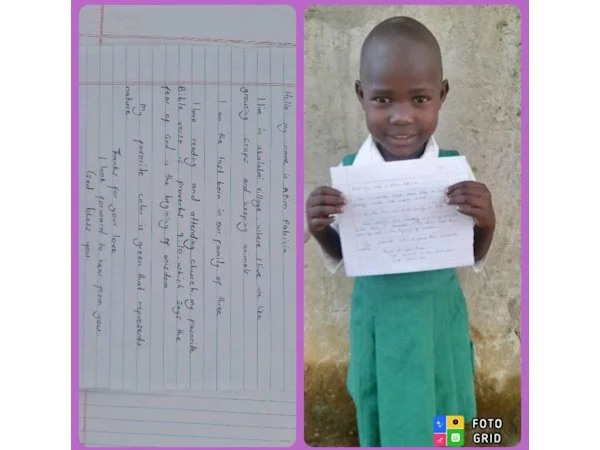 Hello my name is Atim Patricia
I live in akalabai village where I live we like
growing crops and keeping animals
I am the last born in our family of three
I love reading and attending church. my favorite
Bible verse is proverbs 9:10. which says the
fear of God is the begining of wisdom
My favorite color is green that represents
nature
Thanks for your love
I look forward to hear from you.
God bless you.
FOTO
GRID